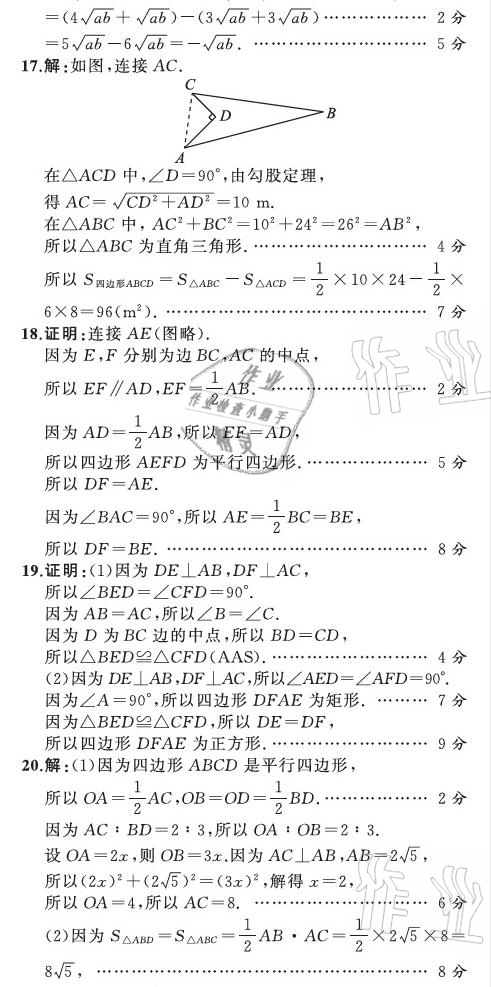 =(4√ab+√ab)-(3√ab+3√ab)………………2分
=5√ab-6√ab=-√ab.………………………5分
17.解:如图,连接AC.
C
D
B
A
在△ACD中,∠D=90°,由勾股定理,
得AC=√CD²+AD²=10 m.
在△ABC中,AC²+BC²=10²+24²=26²=AB²,
所以△ABC为直角三角形.………………………4分
所以S四边形ABCD=S△ABC-S△ACD=1/2×10×24-1/2×
6×8=96(m²).……………………………………7分
18.证明:连接AE(图略).
因为E,F分别为边BC,AC的中点,
所以EF∥AD,EF=1/2AB.……………………2分
因为AD=1/2AB,所以EF=AD,
所以四边形AEFD为平行四边形.………………5分
所以DF=AE.
因为∠BAC=90°,所以AE=1/2BC=BE,
所以DF=BE.……………………………………8分
19.证明:(1)因为DE⊥AB,DF⊥AC,
所以∠BED=∠CFD=90°.
因为AB=AC,所以∠B=∠C.
因为D为BC边的中点,所以BD=CD,
所以△BED≌△CFD(AAS).……………………4分
(2)因为DE⊥AB,DF⊥AC,所以∠AED=∠AFD=90°.
因为∠A=90°,所以四边形DFAE为矩形.………7分
因为△BED≌△CFD,所以DE=DF,
所以四边形DFAE为正方形.……………………9分
20.解:(1)因为四边形ABCD是平行四边形,
所以OA=1/2AC,OB=OD=1/2BD.……………2分
因为AC:BD=2:3,所以OA:OB=2:3.
设OA=2x,则OB=3x.因为AC⊥AB,AB=2√5,
所以(2x)²+(2√5)²=(3x)²,解得x=2,
所以OA=4,所以AC=8.………………………6分
(2)因为S△ABD=S△ABC=1/2AB·AC=1/2×2√5×8=
8√5,………………………………………………8分
作业
作业检查小助手
精灵
作业
作业